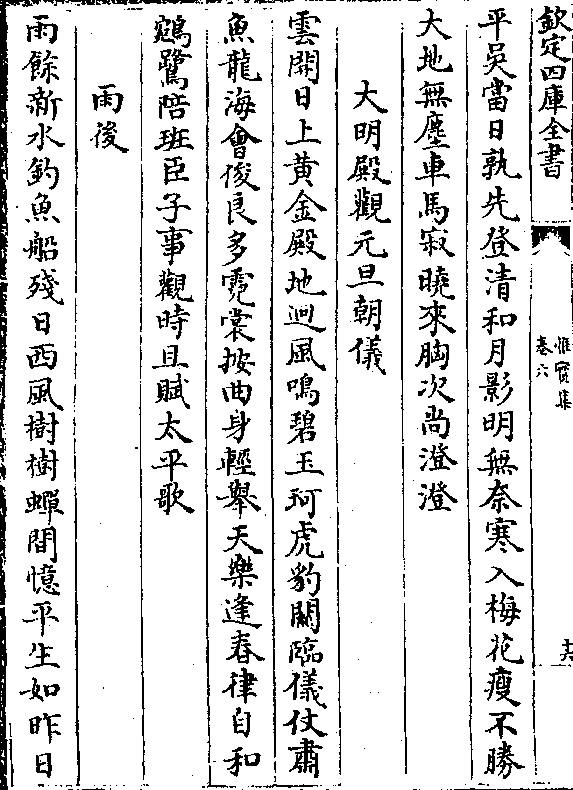 欽定四庫全書
惟實集
卷六
十六
平吳當日孰先登清和月影明無奈寒入梅花瘦不勝
大地無塵車馬寂曉來胸次尚澄澄
大明殿觀元旦朝儀
雲開日上黄金殿地迥風鳴碧玉珂虎豹關臨儀仗肅
魚龍海會俊良多霓裳按曲身輕舉天樂逢春律自和
鵷鷺陪班臣子事觀時且賦太平歌
雨後
雨餘漸水釣魚船殘日西風樹樹蟬閒憶平生如昨日